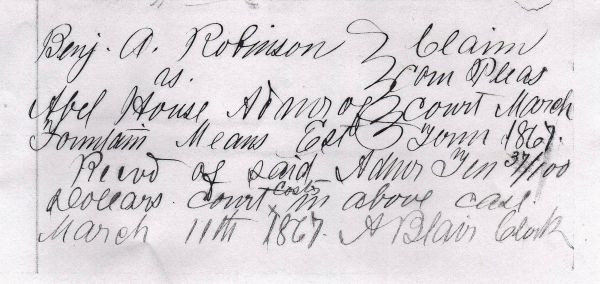 Benj. A. Robinson } Claim
vs. } Com Pleas
Abel House Admr of } Court March
Fountain Means Est } Term 1867.
Recvd of said Admr Ten 37/100
Dollars Court Costs in above case
March 11th 1867. A Blair Clerk